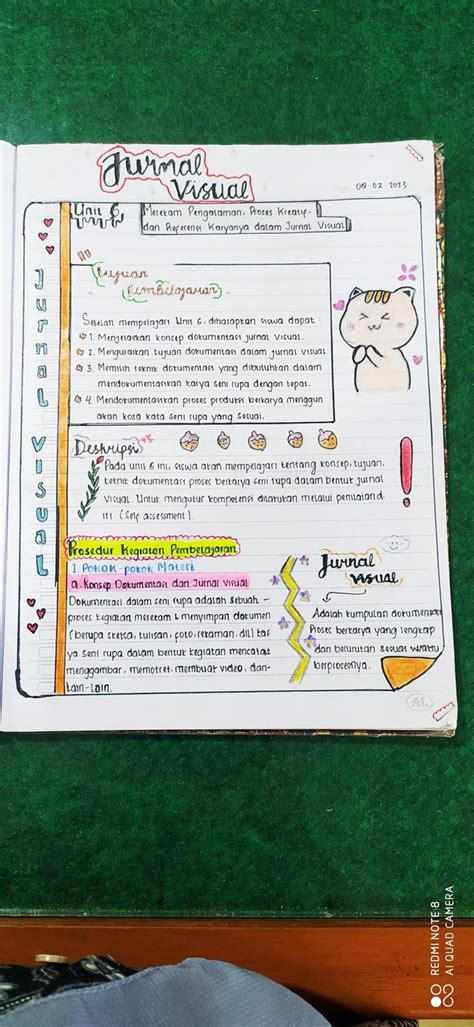 Jurnal
Visual
Date: 08-02-2023
Unit 6
Merekam Pengalaman, Proses Kreatif,
dan Referensi Karyanya dalam Jurnal Visual
Jurnal Visual
Tujuan
Pembelajaran
Setelah mempelajari Unit 6, diharapkan siswa dapat :
1. Menjelaskan konsep dokumentasi jurnal visual.
2. Menguraikan tujuan dokumentasi dalam jurnal visual
3. Memilih teknik dokumentasi yang dibutuhkan dalam
mendokumentasikan karya seni rupa dengan tepat.
4. Mendokumentasikan proses produksi berkarya menggun
akan kosa kata seni rupa yang sesuai.
Deskripsi
Pada unit 6 ini, siswa akan mempelajari tentang konsep, tujuan,
teknik dokumentasi proses berkarya seni rupa dalam bentuk jurnal
visual. Untuk mengukur kompetensi dilakukan melalui penilaian d
iri (self assessment).
Prosedur Kegiatan Pembelajaran
1. Pokok-pokok Materi
a. Konsep Dokumentasi dan Jurnal Visual
Dokumentasi dalam seni rupa adalah sebuah -
proses kegiatan merekam & menyimpan dokumen
(berupa sketsa, tulisan, foto, rekaman, dll) kar
ya seni rupa dalam bentuk kegiatan mencatat
menggambar, memotret, membuat video, dan-
lain-lain.
Jurnal
visual
Adalah kumpulan dokumentasi
Proses berkarya yang lengkap
dan berurutan sesuai waktu
berprosesnya.
AL
REDMI NOTE 8
AI QUAD CAMERA